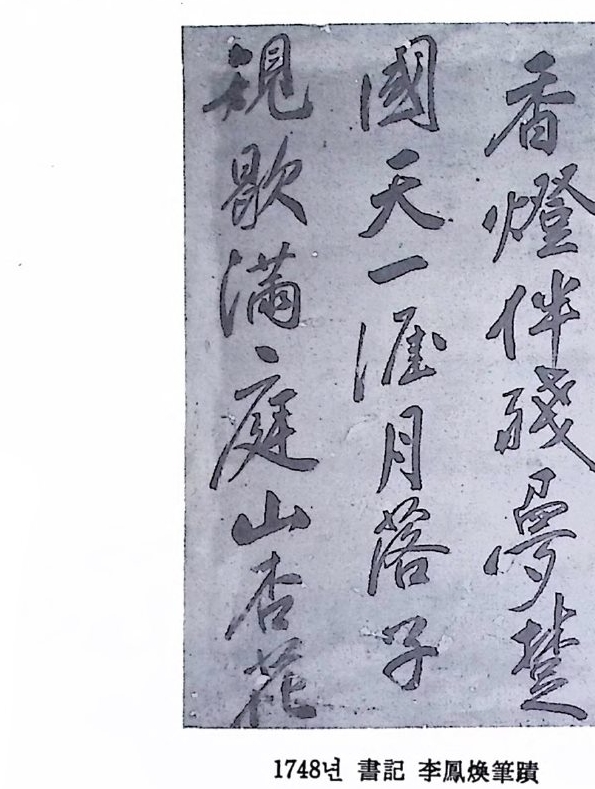 香燈伴殘夢楚
國天一涯月落子
規歇滿庭山杏花
1748년 書記 李鳳煥筆蹟